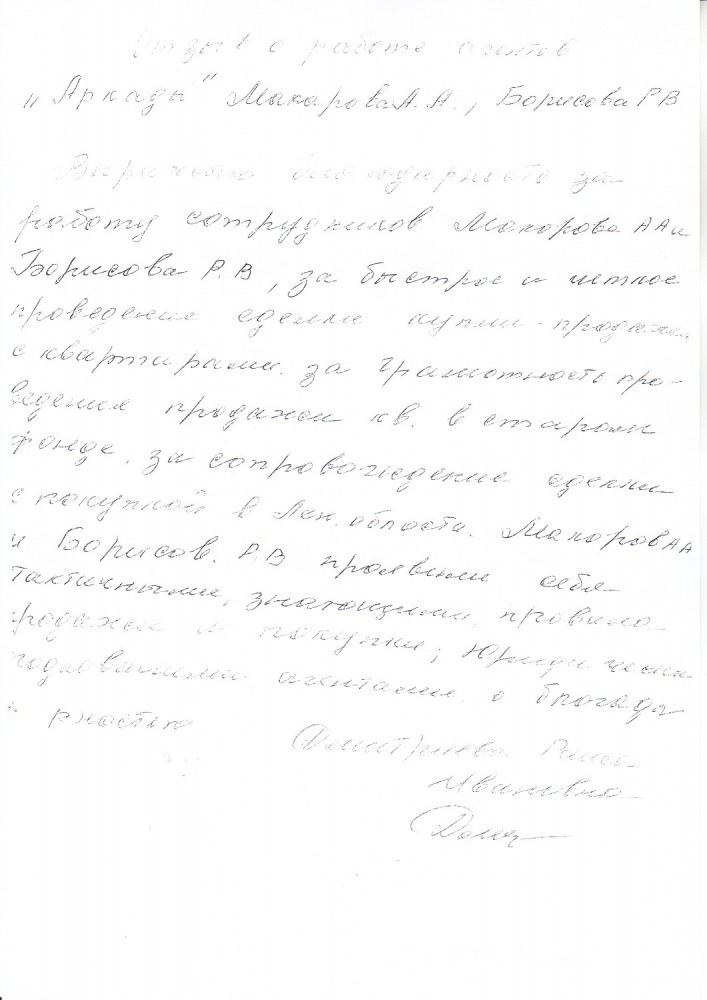 Отзыв о работе агентов
„Аркады" Макарова А.А., Борисова РВ
Выражаю благодарность за
работу сотрудников Макарова АА и
Борисова Р.В, за быстрое и четкое
проведение сделки купли-продажи
с квартирами. за грамотность про-
ведения продажи кв. в старом
фонде. за сопровождение сделки
с покупкой в Лен. области. Макаров АА
и Борисов. Р.В проявили себя
тактичными, знающими, правила
продажи и покупки; Юридически
подкованными агентами. с благода
рностью
Дмитриева Раиса
Ивановна